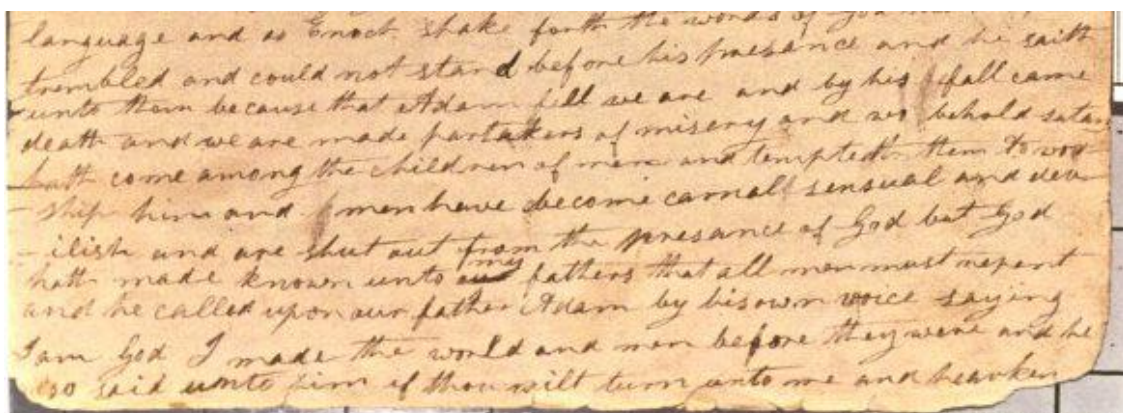 language and as Enoch spake forth the words of God
trembled and could not stand before his presance and he saith
unto them because that Adam fell we are and by his fall came
death and we are made partakers of misery and wo behold satan
hath come among the children of men and tempteth them to wor
-ship him and men have become carnall sensual and dev
-ilish and are shut out from the presance of God but God
hath made known unto my fathers that all men must repent
and he called upon our father Adam by his own voice saying
I am God I made the world and men before they were and he
also said unto him if thou wilt turn unto me and hearken